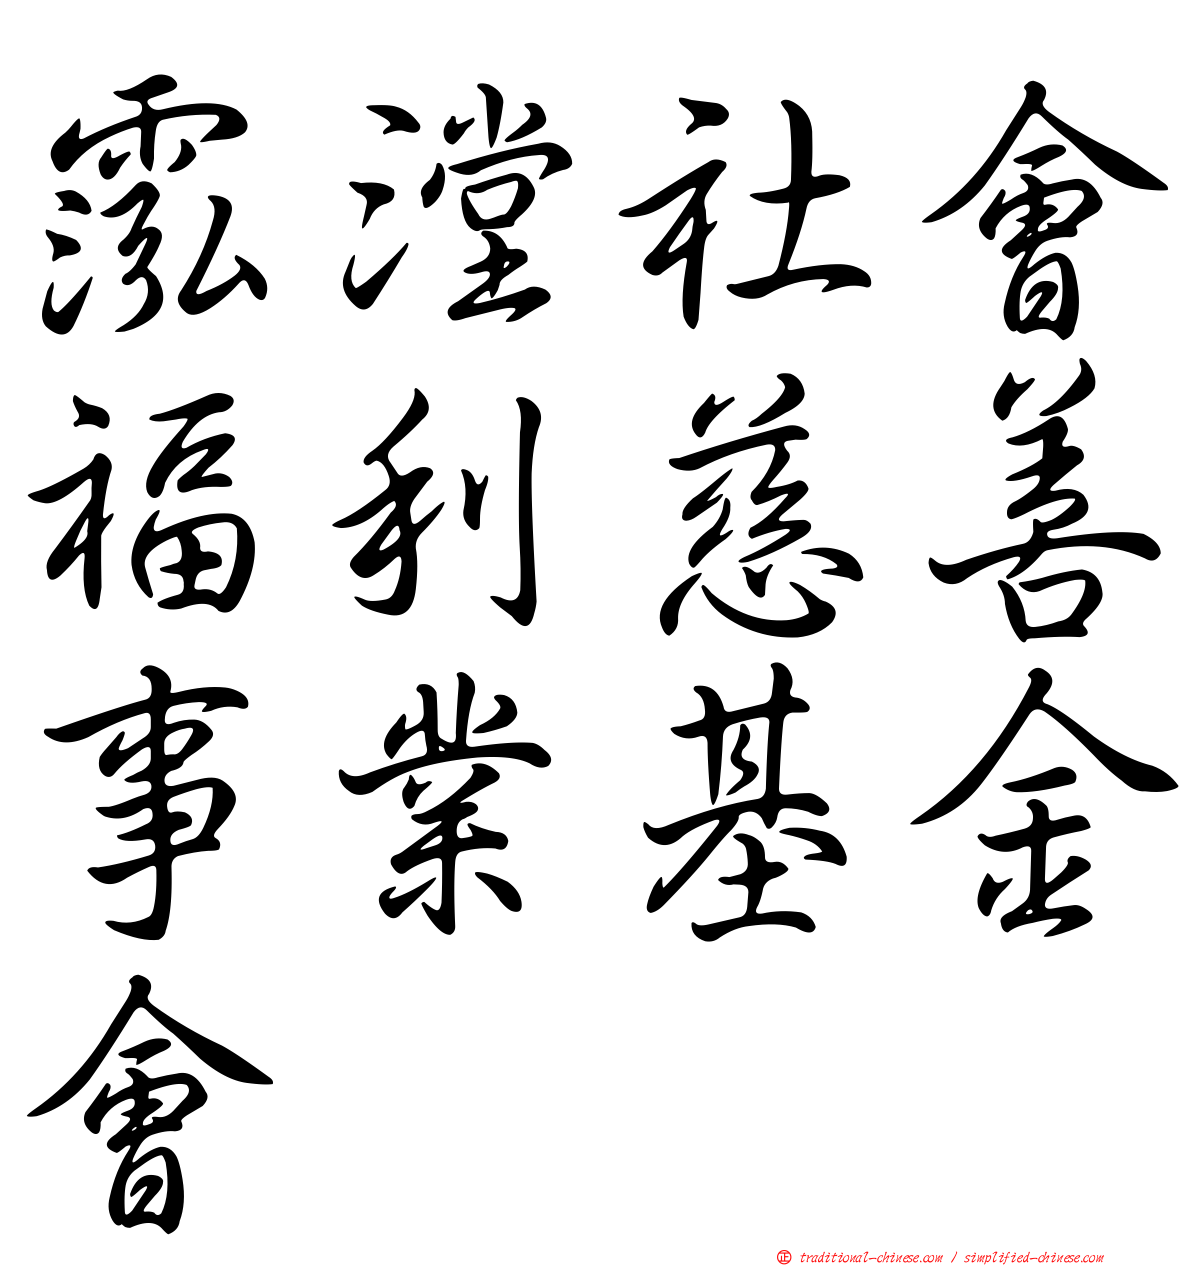 霐漟社會
福利慈善
事業基金
會
㊣ traditional-chinese.com / simplified-chinese.com